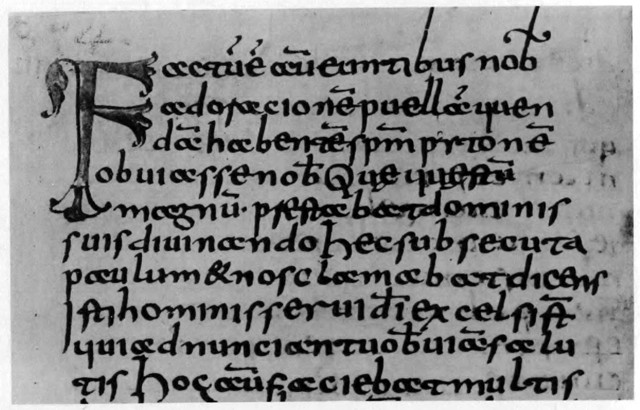 Factū ē aū euntibus nob̄
ad oracionē puellā quen
dā habentē spm̄ pitonē
obuiasse nob̄ Que questū
magnū· prestabat dominis
suis diuinando hec subsecuta
paulum & nos clamabat dicens
isti hominis serui dī excelsi st̄
qui adnunciant uob̄ uiā salu
tis hoc aū faciebat multis